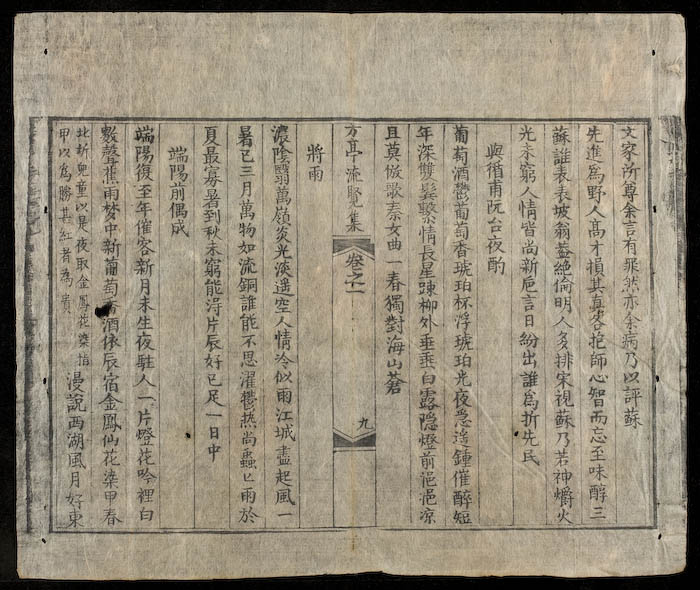 文家所尊余言有罪然亦余病乃以評蘇
先進為野人高才損其真各抱師心智而忘至味醇三
蘇誰表表坡翁蓋絶倫明人多排宋視蘇乃若神爝火
光未窮人情皆尚新巵言日紛出誰為折先民
與循甫阮台夜酌
葡萄酒鬱葡萄香琥珀杯浮琥珀光夜遙鍾催醉短
年深雙鬂繫情長星踈柳外垂垂白露隠燈前浥浥凉
且莫倣歌秦女曲一春獨對海山蒼
方亭流覧集
卷之二
九
將雨
濃陰翳萬嶺炎光淡遥空人情冷似雨江城盡起風一
暑已三月萬物如流銅誰能不思濯鬱尚蟲亡雨於
夏最寡暑到秋未窮能淂片辰好已足一日中
端陽前偶成
端陽復至年催客新月未生夜駐人一片燈花吟裡白
數聲蕉雨梦中新葡萄香酒依辰宿金鳳仙花染甲春
北圻兒童以是夜取金鳳花染指
甲以為勝其紅者為貴
漫說西湖風月好東